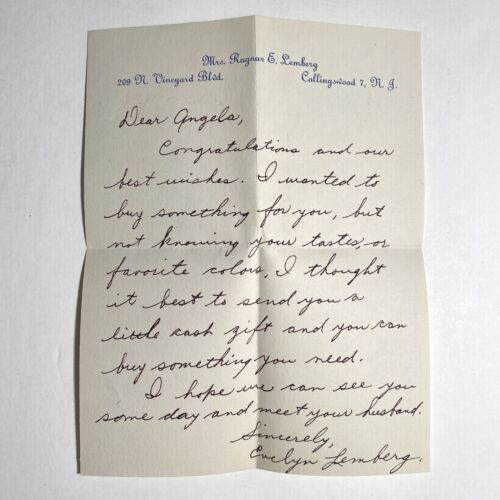 Mrs. Ragnar E. Lemberg
209 N. Vineyard Blvd. Collingswood 7, N. J.
Dear Angela,
Congratulations and our
best wishes. I wanted to
buy something for you, but
not knowing your tastes, or
favorite colors, I thought
it best to send you a
little cash gift and you can
buy something you need.
I hope we can see you
some day and meet your husband.
Sincerely,
Evelyn Lemberg.